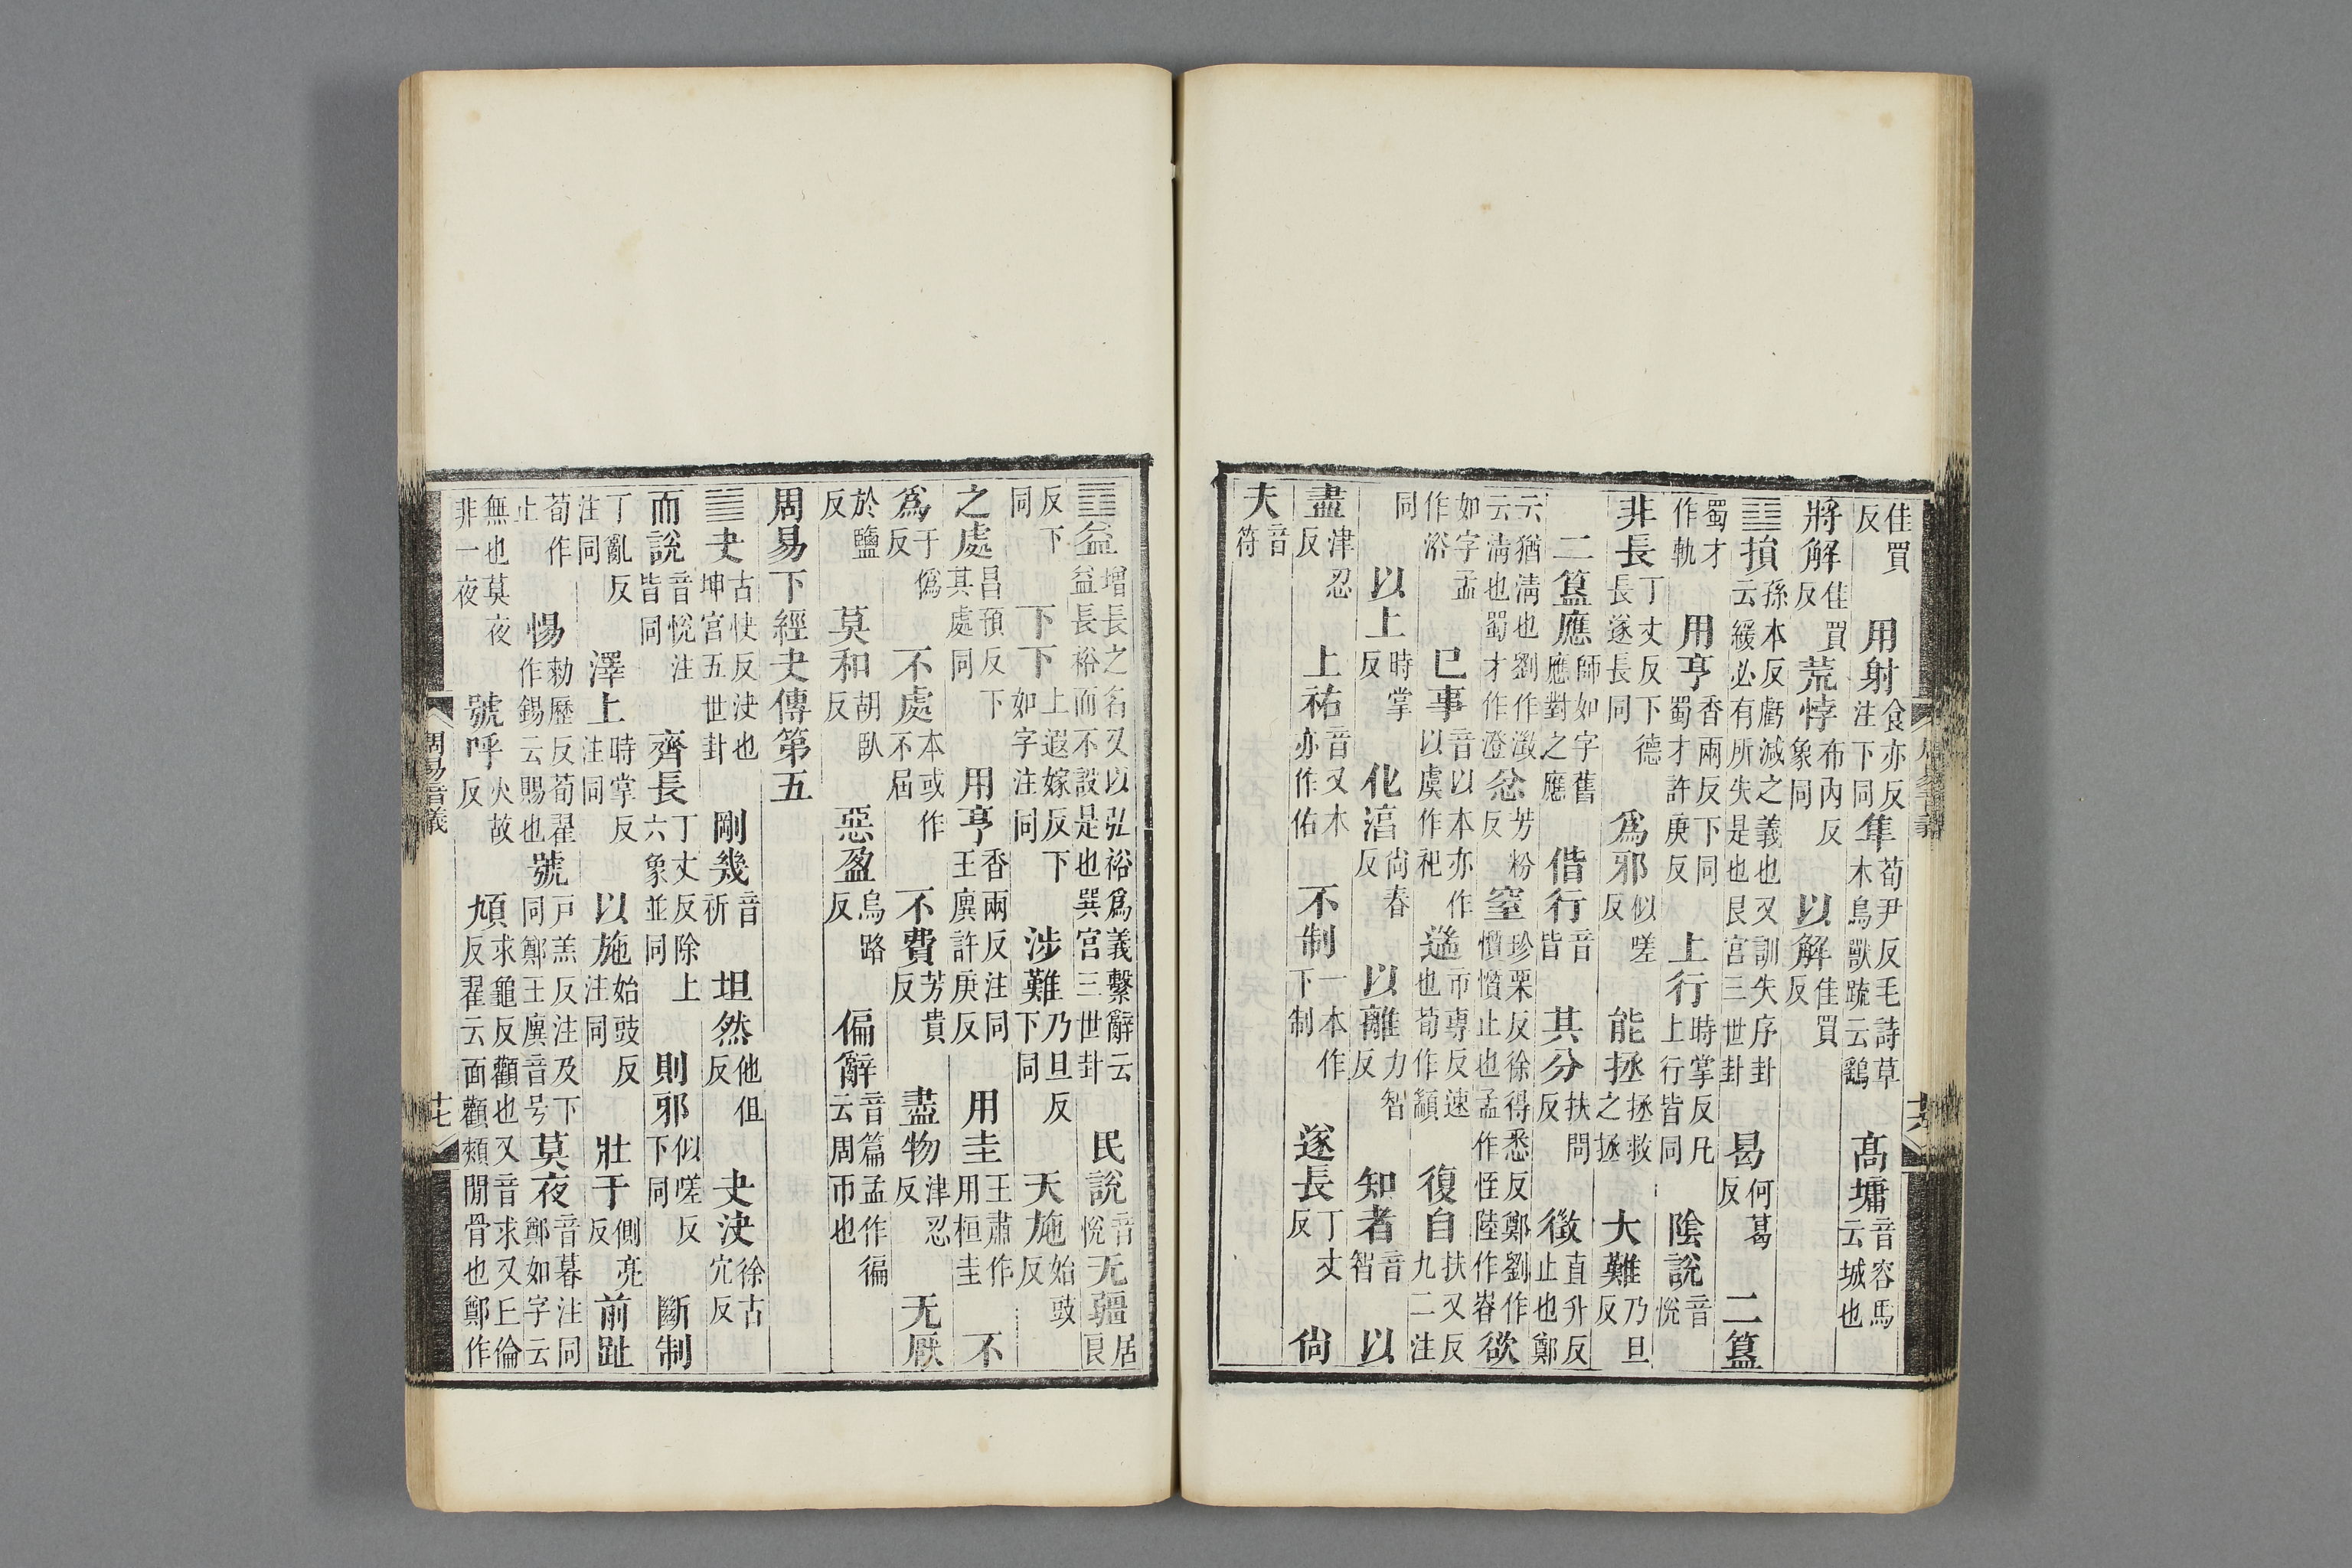 佳買反 用射食亦反注下同 隼荀尹反毛詩草木鳥獸䟽云鷂 髙墉音容馬云城也
將解佳買反 荒悖布内反象同 以解佳買反
䷨損孫本反虧減之義也又訓失序卦云緩必有所失是也艮宫三世卦 曷何葛反 二簋
蜀才作軌 用亨香兩反下同蜀才許庚反 上行時掌反凡上行皆同 陰說音悅
非長丁丈反下德長遂長同 爲邪似嗟反 能拯拯救之拯 大難乃旦反
二簋應師如字舊應對之應 偕行音皆 其分扶問反 徵直升反止也鄭
云猶淸也劉作澂云淸也蜀才作澄 忿芳粉反 窒珍栗反徐得悉反鄭劉作懫懫止也孟作恎陸作㟧 欲
如字孟作浴 已事音以本亦作以虞作祀 遄市專反速也荀作顓 復自扶又反九二注
同 以上時掌反 化淳尚春反 以離力智反 知者音智 以
盡津忍反 上祐音又本亦作佑 不制一本作下制 遂長丁丈反 尙
夫音符
周易音義
十六
䷩益增長之名又以弘裕爲義繫辭云益長裕而不設是也巽宫三世卦 民說音悅 无疆居良
反下同 下下上遐嫁反下如字注同 涉難乃旦反下同 天施始豉反
之處昌預反下其處同 用亨香兩反注同王廙許庚反 用圭王肅作用桓圭 不
爲于僞反 不處本或作不屆 不費芳貴反 盡物津忍反 无厭
於鹽反 莫和胡臥反 惡盈烏路反 偏辭音篇孟作徧云周帀也
周易下經夬傳第五
䷪夬古快反決也坤宫五世卦 剛幾音祈 坦然他但反 夬決徐古穴反
而說音悅注皆同 齊長丁丈反除上六象並同 則邪似嗟反下同 斷制
丁亂反注同 澤上時掌反注同 以施始豉反注同 壯于側亮反 前趾
荀作止 惕勑歷反荀翟作錫云賜也 號戸羔反注及下同鄭王廙音号 莫夜音暮注同鄭如字云
無也莫夜非一夜 號呼火故反 頄求龜反顴也又音求又丘倫反翟云面顴頰閒骨也鄭作
周易音義
十七